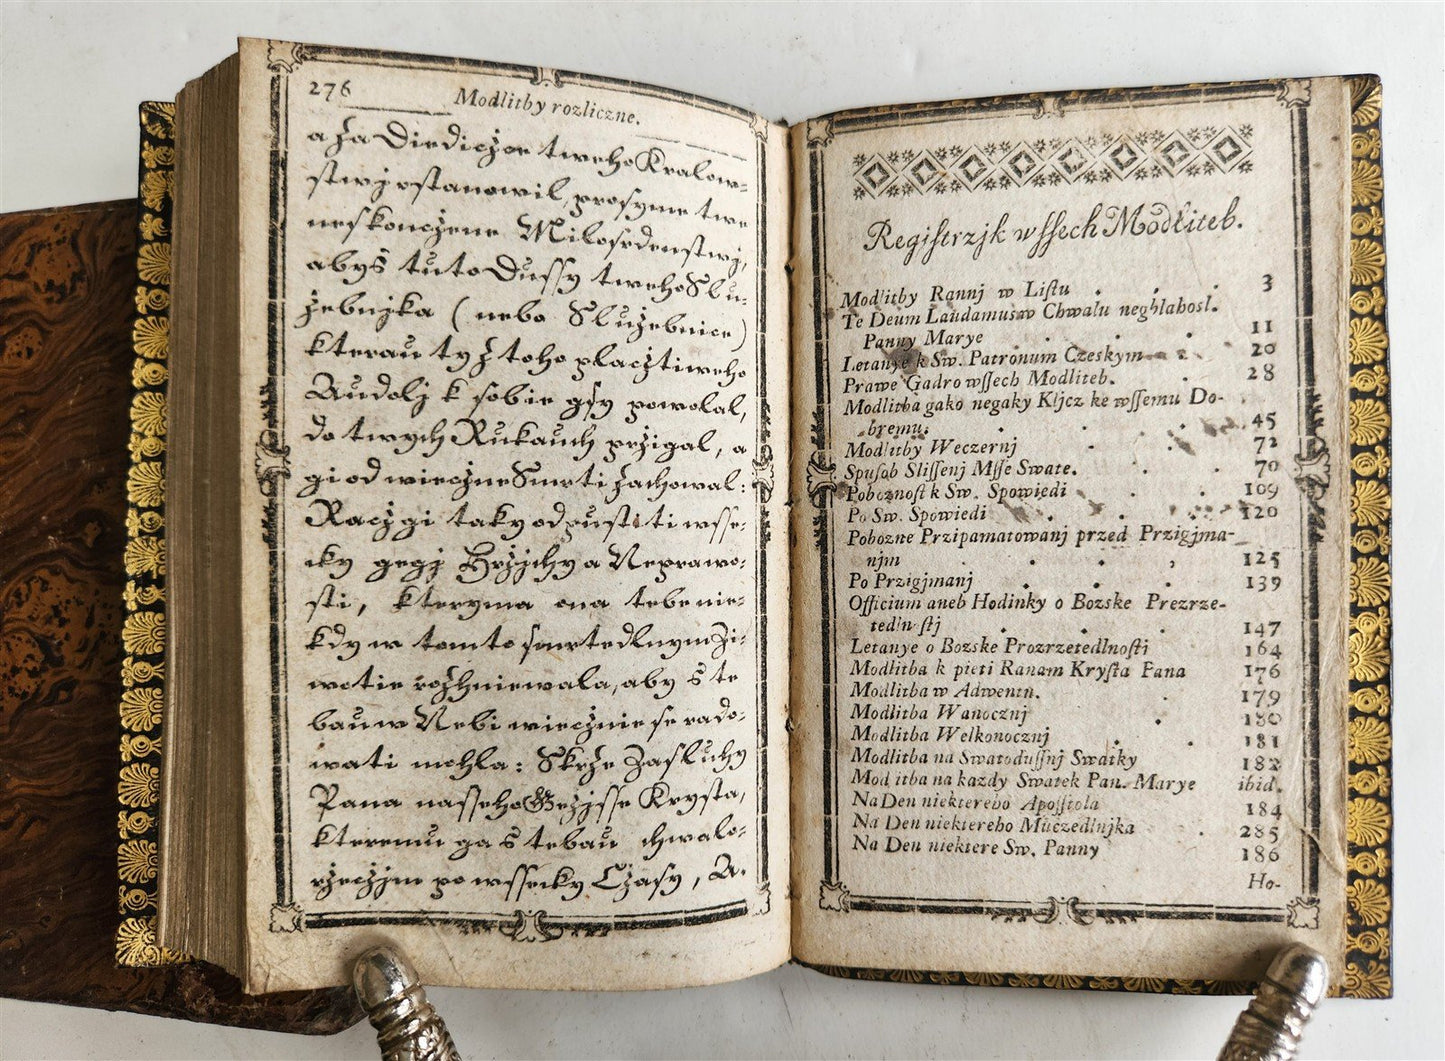 276
Modlitby rozliczne.
a za Diedicze tweho Kralow-
stwj vstanowil, prosyme twe
neskonczene Milosrdenstwj,
abys tuto Dussy tweho Slu-
zebnjka ( nebo Sluzebnice )
kterau ty z toho placztiweho
Audolj k sobie gsy powolal,
do twych Rukauch przigal, a
gi od wieczne Smrti zachowal:
Raczy gi taky odpustiti wsse-
cky gegj Hrzjchy a Neprawo-
sti, kteryma ona tebe nie-
kdy w tomto smrtedlnym Zi-
wotie rozhniewala, aby s te-
bau w Nebi wiecznie se rado-
wati mohla: Skrze Zasluhy
Pana nasseho Gezjsse Krysta,
kteremu ga s tebau chwalo-
rzeczjm po wssecky Czasy, A.
Regiſtrzjk wſſech Modliteb.
Modlitby Rannj w Liſtu . . . 3
Te Deum Laudamus w Chwalu neghlahosl.
Panny Marye . . . 11
Letanye k Sw. Patronum Czeskym . 20
Prawe Gadro wſſech Modliteb. . 28
Modlitba gako negaky Kljcz ke wſſemu Do-
bremu. . . . 45
Modlitby Weczernj . . . 72
Spuſob Sliſſenj Mſſe Swate. . . 70
Poboznoſt k Sw. Spowiedi . . 109
Po Sw. Spowiedi . . . 120
Pobozne Przipamatowanj przed Przigjma-
njm . . . , 125
Po Przigjmanj . . . 139
Officium aneb Hodinky o Bozske Prezrze-
tedlnoſtj . . . 147
Letanye o Bozske Prozrzetedlnoſti . 164
Modlitba k pieti Ranam Kryſta Pana 176
Modlitba w Adwentu. . 179
Modlitba Wanocznj . 180
Modlitba Welkonocznj . . 181
Modlitba na Swatoduſſnj Swatky 182
Modlitba na kazdy Swatek Pan. Marye ibid.
Na Den niektereho Apoſſtola 184
Na Den niektereho Muczedlnjka . 285
Na Den niektere Sw. Panny 186
Ho-